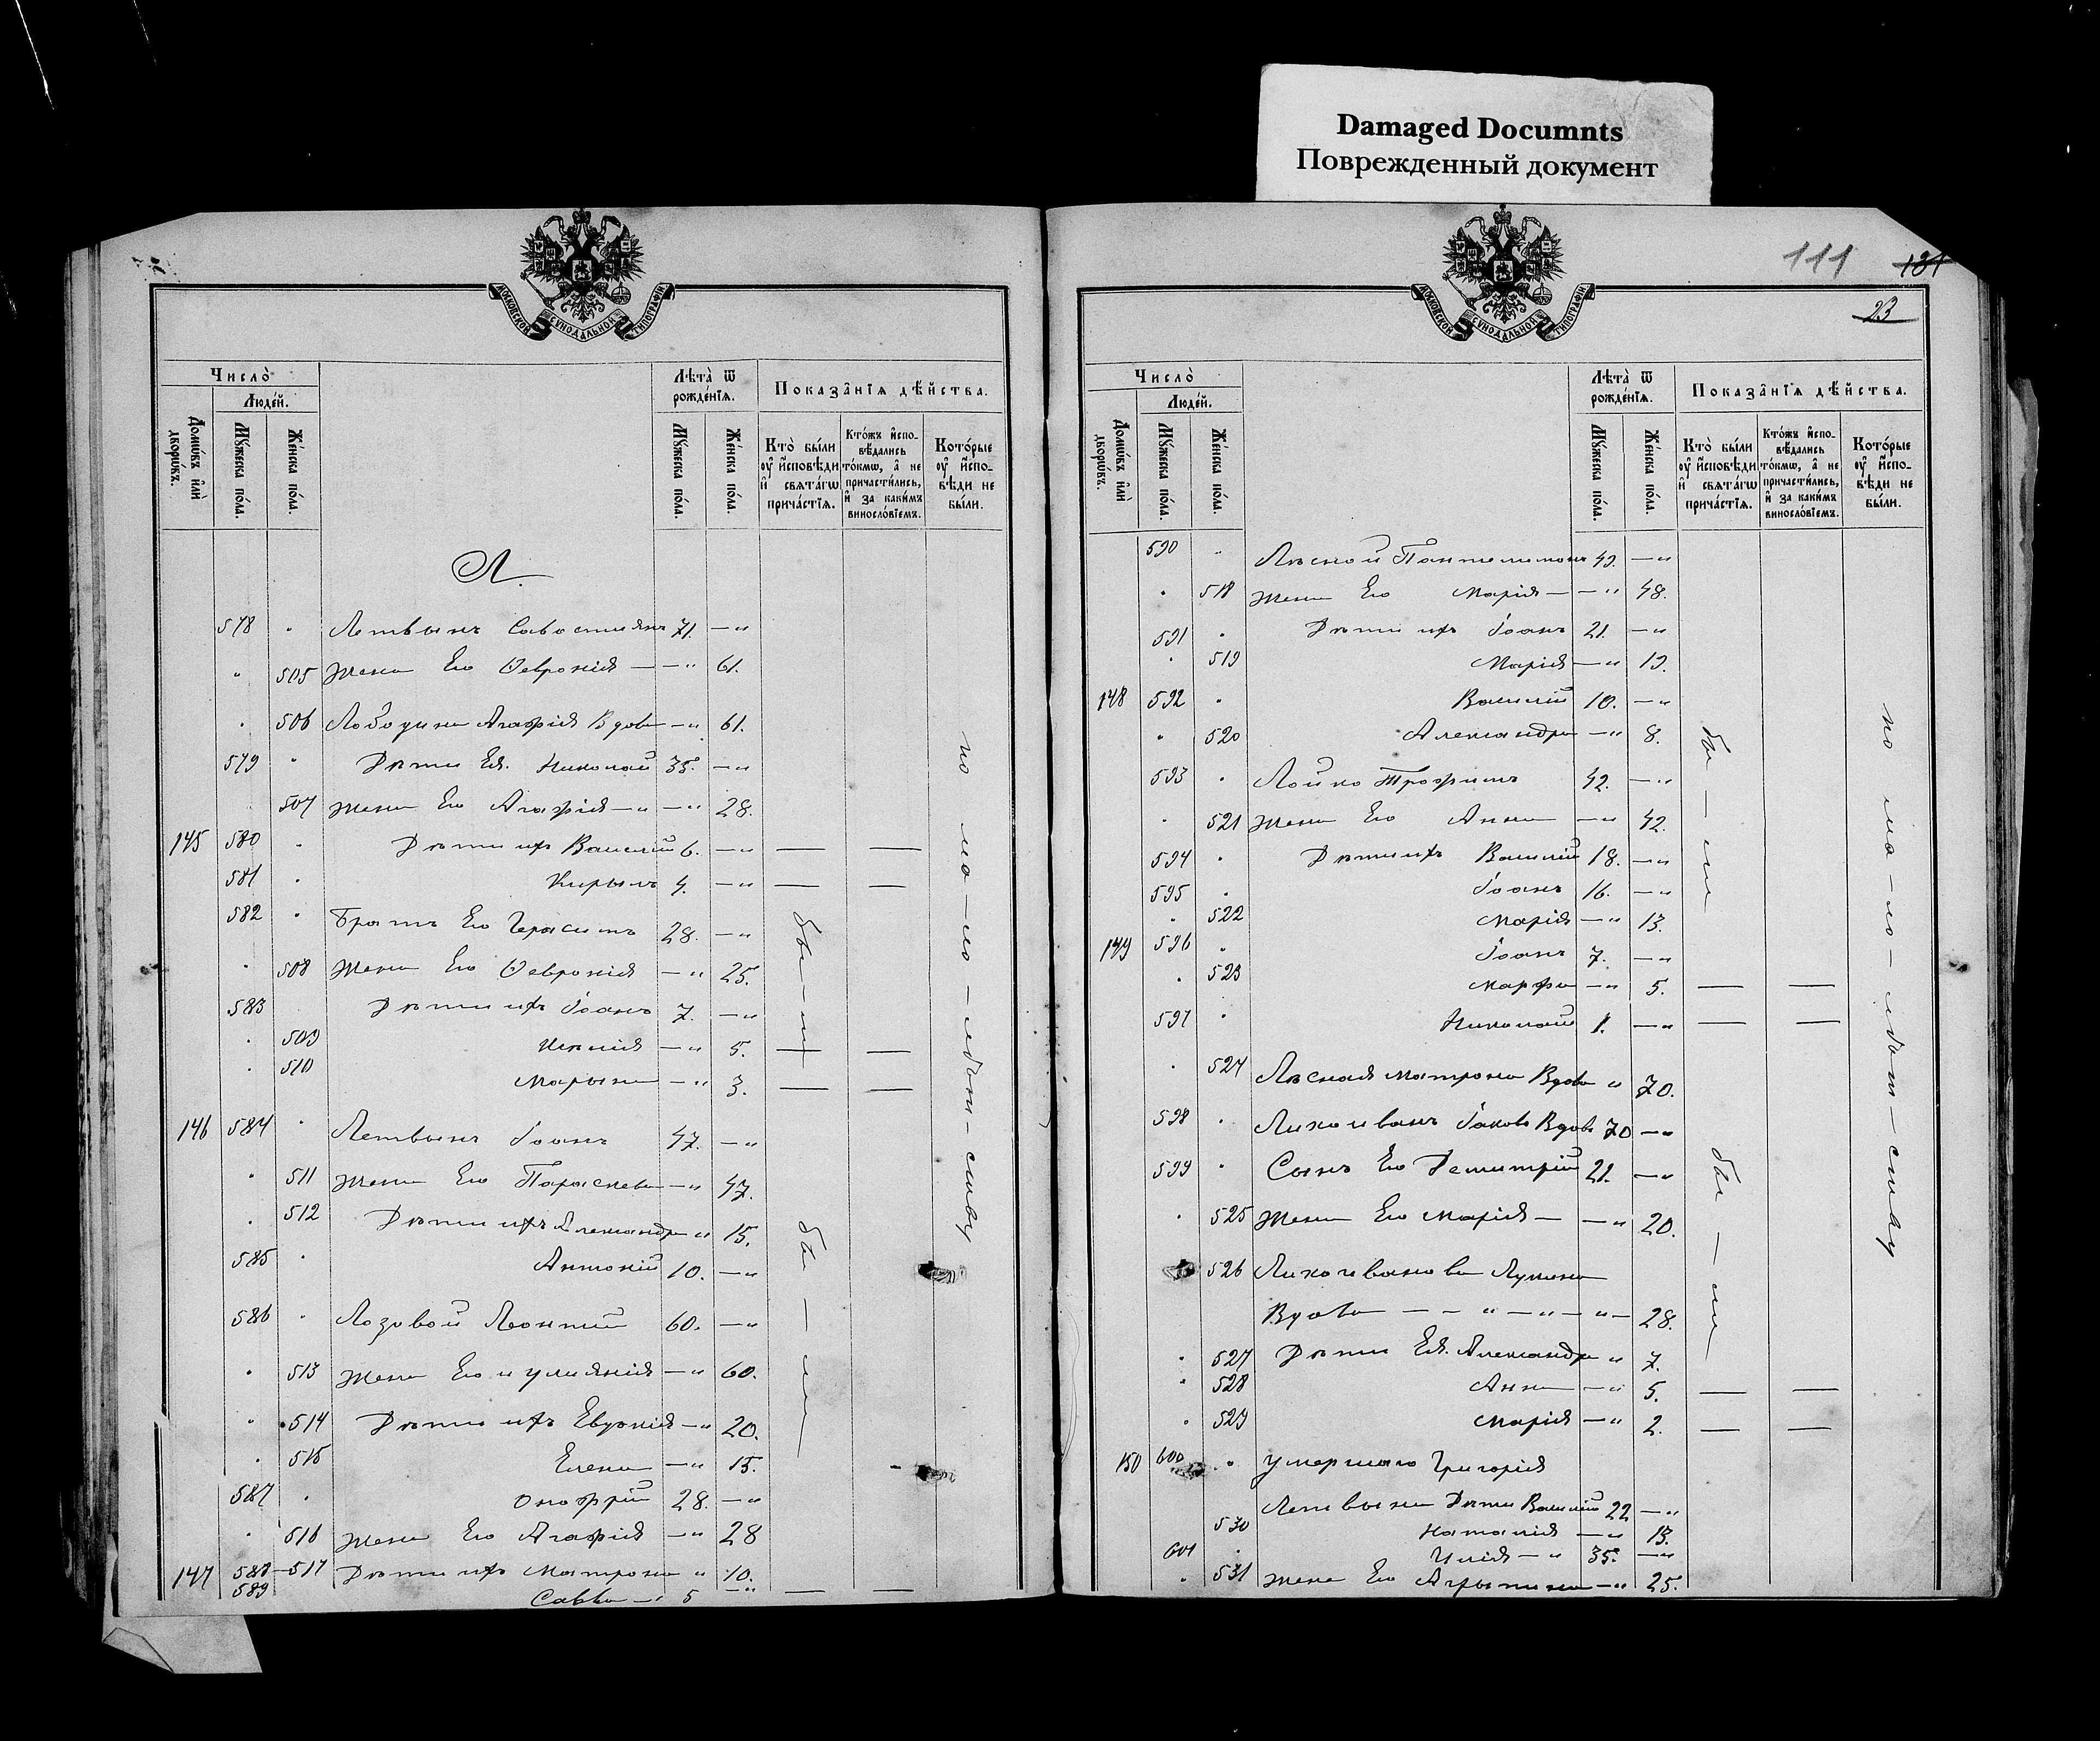 Damaged Documnts
Поврежденный документ
МОСКОВСКОЙ СУНОДАЛЬНОЙ ТИПОГРАФІИ
Число̀
Людéй.
Домѡ́въ и҆лѝ дворѡ́въ.
Мꙋ́жеска по́ла.
Же́нска по́ла.
Лѣ́та ѿ рожде́нїѧ.
Мꙋ́жеска по́ла.
Же́нска по́ла.
Показа̑нїѧ дѣ́йства.
Кто̀ бы́ли оу҆ и҆сповѣ́ди и҆ свѧта́гѡ прича́стїѧ.
Кто́жъ и҆спо-вѣ́дались то́кмѡ, а҆ не причасти́лись, и҆ за каки́мъ винослові́емъ.
Кото́рые оу҆ и҆спо-вѣ́ди не бы́ли.
Л.
578 " Летвынъ Савостиянъ 71. — "
" 505 Жена Его Ѳевронія — — " 61.
" 506 Лободина Агафія Вдова — " 61.
579 " Дѣти Ея. Николай 35. — "
507 Жена Его Агафія — " — " 28.
145 580 " Дѣти ихъ Василій 6. — " — —
581 " Кирылъ 4. — " — —
582 " Братъ Его Герасимъ 28. — "
" 508 Жена Его Ѳевронія — " 25.
583 Дѣти ихъ Іоанъ 7. — "
" 509 — " 5. — —
" 510 Марына — " 3. — —
146 584 " Летвынъ Іоанъ 47. — "
" 511 Жена Его Параскева — " 47.
" 512 Дѣти ихъ Александра " 15.
585 " Антоній 10. — "
586 " Лозовой Леонтій 60. — "
" 513 Жена Его иулиянія — " 60.
" 514 Дѣти ихъ Евдокія — " 20.
" 515 Елена — " 15.
587 " Онофрій 28. — "
" 516 Жена Его Агафія — " 28
147 588 — 517 Дѣти ихъ Матрона " 10.
589 Савва — " 5 — " — —
бы — ли
бы — ли
по ма-ло-лѣт-ству
111 131
23
МОСКОВСКОЙ СУНОДАЛЬНОЙ ТИПОГРАФІИ
Число̀
Людéй.
Домѡ́въ и҆лѝ дворѡ́въ.
Мꙋ́жеска по́ла.
Же́нска по́ла.
Лѣ́та ѿ рожде́нїѧ.
Мꙋ́жеска по́ла.
Же́нска по́ла.
Показа̑нїѧ дѣ́йства.
Кто̀ бы́ли оу҆ и҆сповѣ́ди и҆ свѧта́гѡ прича́стїѧ.
Кто́жъ и҆спо-вѣ́дались то́кмѡ, а҆ не причасти́лись, и҆ за каки́мъ винослові́емъ.
Кото́рые оу҆ и҆спо-вѣ́ди не бы́ли.
590 " Лѣсной Пантелимонъ 49. — "
" 518 Жена Его Марія — — " 48.
591 " Дѣти ихъ Іоанъ 21. — "
" 519 Марія — " 19.
148 592 " Василій 10. — "
" 520 Александра — " 8.
593 " Лойко Трофимъ 42. — "
" 521 Жена Его Анна — " 42.
594 " Дѣти ихъ Василій 18. — "
595 " Іоанъ 16. — "
" 522 Марія — " 13.
149 596 " Іоанъ 7. — "
" 523 Марфа — " 5. — —
597 " Николай 1. — " — —
" 524 Лѣсная Матрона Вдова " 70.
598 " Лихоиванъ Іаковъ Вдовъ 70 — "
599 " Сынъ Его Демитрій 21. — "
" 525 Жена Его Марія — — " 20.
526 Лихоиванова Лукина
Вдова — — " — " — " — 28.
" 527 Дѣти Ея. Александра " 7.
" 528 Анна — " 5. — —
" 529 Марія — " 2. — —
150 600 " умершаго Григорія
Летвына Дѣти Василій 22 — "
530 Наталія — " 13.
601 " Илія — " 35. — "
" 531 Жена Его Агрыпина — " 25.
бы — ли
бы — ли
по ма-ло-лѣт-ству